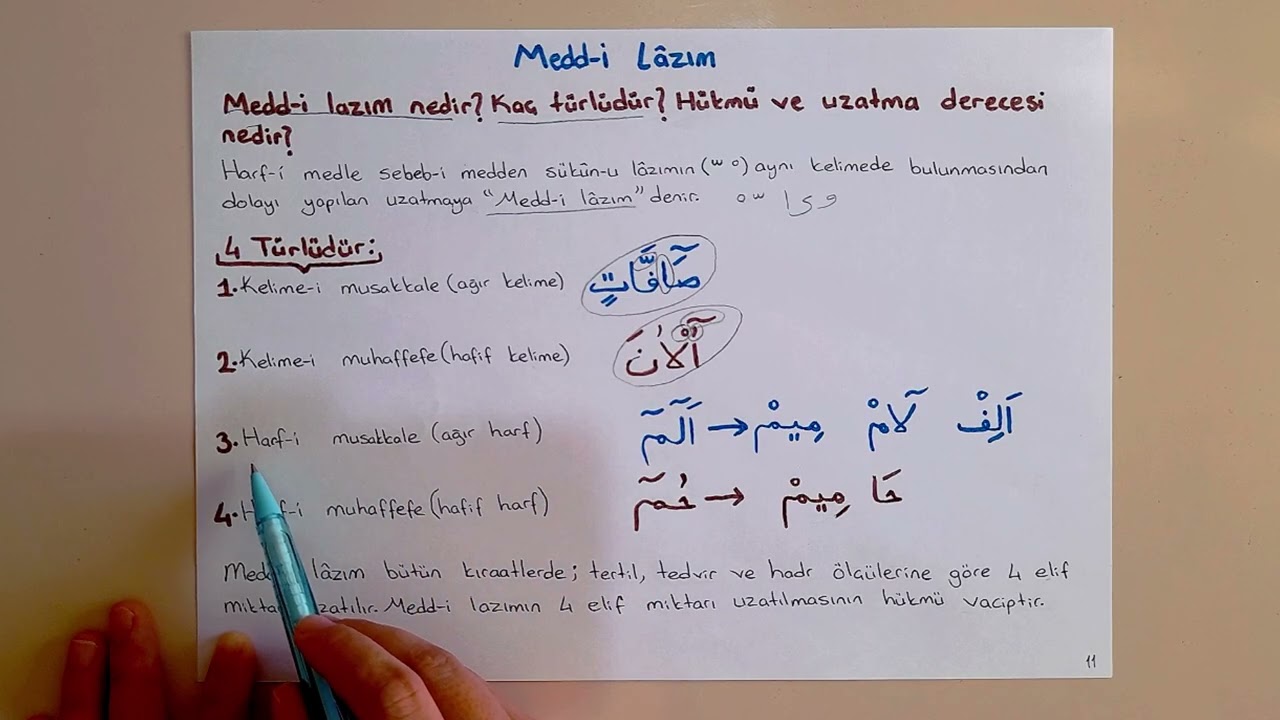 Medd-i Lâzım
Medd-i lazım nedir? Kaç türlüdür? Hükmü ve uzatma derecesi
nedir?
Harf-i medle sebeb-i medden sükûn-u lâzımın (ــّـ ــْـ) aynı kelimede bulunmasından
dolayı yapılan uzatmaya "Medd-i lâzım" denir. و ى ا
4 Türlüdür:
1. Kelime-i musakkale (ağır kelime) صَٓافَّاتٍ
2. Kelime-i muhaffefe (hafif kelime) آٰلْاٰنَ
3. Harf-i musakkale (ağır harf) اَلٓمٓ → اَلِفْ لَٓامْ مِيمْ
4. muhaffefe (hafif harf) حٰمٓ → حَا مِيمْ
lâzım bütün kıraatlerde; tertil, tedvir ve hadr ölçülerine göre 4 elif
Medd-i lazımın 4 elif miktarı uzatılmasının hükmü vaciptir.
11